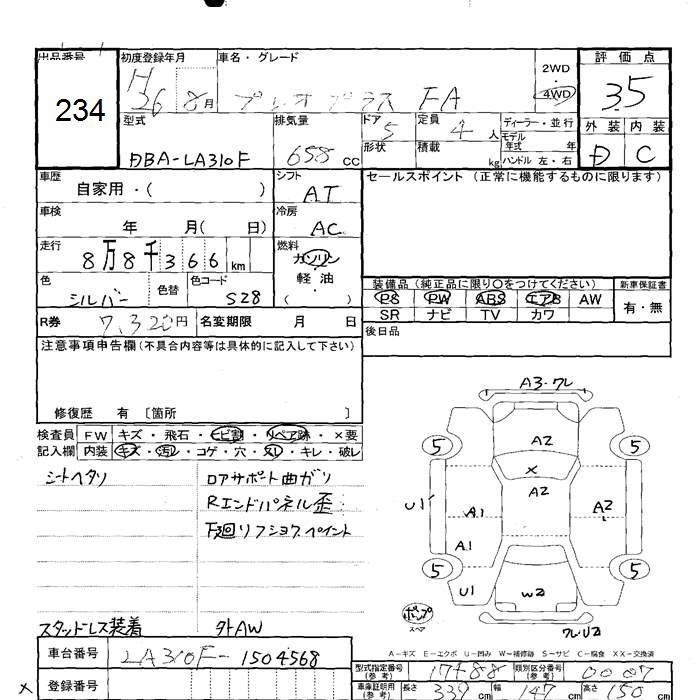 出品番号
234
初度登録年月 H26 8月
車名・グレード プレオプラス FA
2WD
4WD
評価点 3.5
外装 D 内装 C
型式 DBA-LA310F
排気量 658 cc
ドア 5
形状
定員 4 人
積載 kg
ディーラー・並行
モデル年式 年
ハンドル 左・右
車歴 自家用・( )
シフト AT
セールスポイント (正常に機能するものに限ります)
車検 年 月( 日)
冷房 AC
走行 8万8千366 km
燃料 ガソリン・軽油・( )
色 シルバー 色替 色コード S28
装備品 (純正品に限り○をつけてください) 新車保証書
PS PW ABS エアB AW 有・無
SR ナビ TV カワ
R券 7,320円 名変期限 月 日
後日品
注意事項申告欄(不具合内容等は具体的に記入して下さい)
修復歴 有 〔箇所 〕
検査員 FW キズ・飛石・ヒビ割・リペア跡・×要
記入欄 内装 キズ・汚レ・コゲ・穴・スレ・キレ・破レ
シートヘタリ
ロアサポート曲ガリ
Rエンドパネル歪
下廻リフショク、ペイント
スタッドレス装着 外AW
A3・ワレ
A2
5 5
×
A2
U1 A1 A2
A1
5 5
U1 W2
ポンプ
スペア
ワレ・U2
A-キズ E-エクボ U-凹み W-補修跡 S-サビ C-腐食 XX-交換済
車台番号 LA310F-1504568
型式指定番号(参考) 17488 類別区分番号(参考) 0007
× 登録番号
車庫証明用(参考) 長さ 339 cm 幅 147 cm 高さ 150 cm